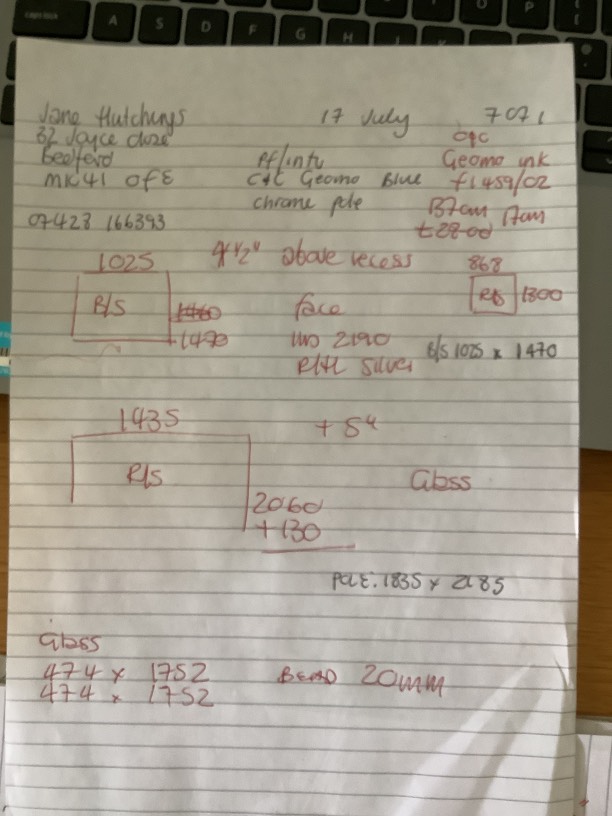 Jane Hutchings 17 July 7071
32 Joyce close opc
Bedford Pf/intu Geomo ink
MK41 0FE C+C Geomo Blue f1459/02
chrome pole 137cm 17cm
07423 166393
1025 4 1/2" above recess 868
R/S 1460 face R/S 1300
1470
2190 B/S 1025 x 1470
silver
1435 + 5"
R/S Glass
2060
+130
POLE: 1835 x 2185
Glass
474 x 1752 BEAD 20mm
474 x 1752